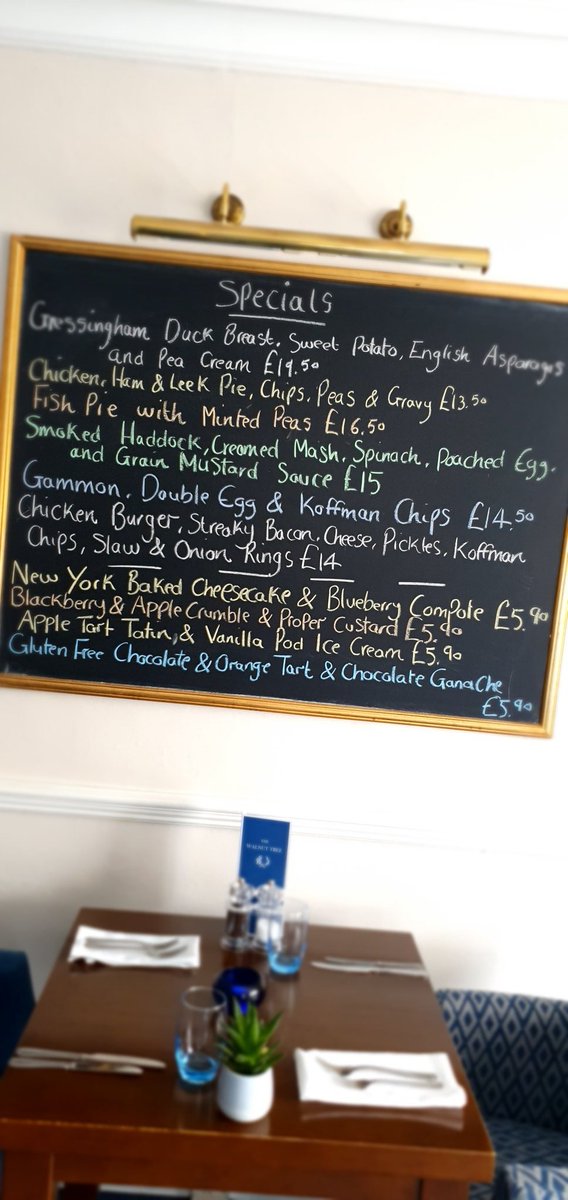 Specials
Gressingham Duck Breast, Sweet Potato, English Asparagus
and Pea Cream £19.50
Chicken, Ham & Leek Pie, Chips, Peas & Gravy £13.50
Fish Pie with Minted Peas £16.50
Smoked Haddock, Creamed Mash, Spinach, Poached Egg,
and Grain Mustard Sauce £15
Gammon, Double Egg & Koffman Chips £14.50
Chicken Burger, Streaky Bacon, Cheese, Pickles, Koffman
Chips, Slaw & Onion Rings £14
New York Baked Cheesecake & Blueberry Compote £5.90
Blackberry & Apple Crumble & Proper Custard £5.90
Apple Tart Tatin, & Vanilla Pod Ice Cream £5.90
Gluten Free Chocolate & Orange Tart & Chocolate Ganache
£5.90
THE
WALNUT TREE